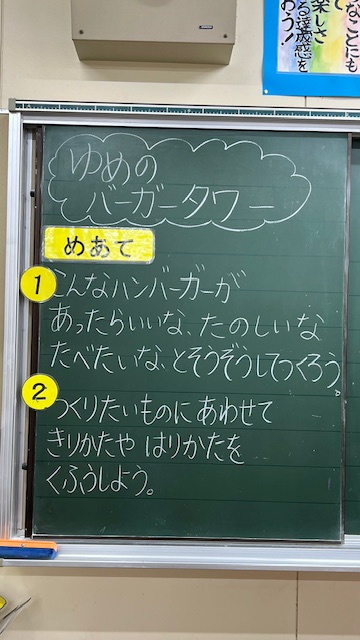 なことにも
て
楽しさ
る達成感を
おう！
ゆめの
バーガータワー
めあて
1
こんなハンバーガーが
あったらいいな、たのしいな
たべたいな、とそうぞうしてつくろう。
2
つくりたいものにあわせて
きりかたや はりかたを
くふうしよう。